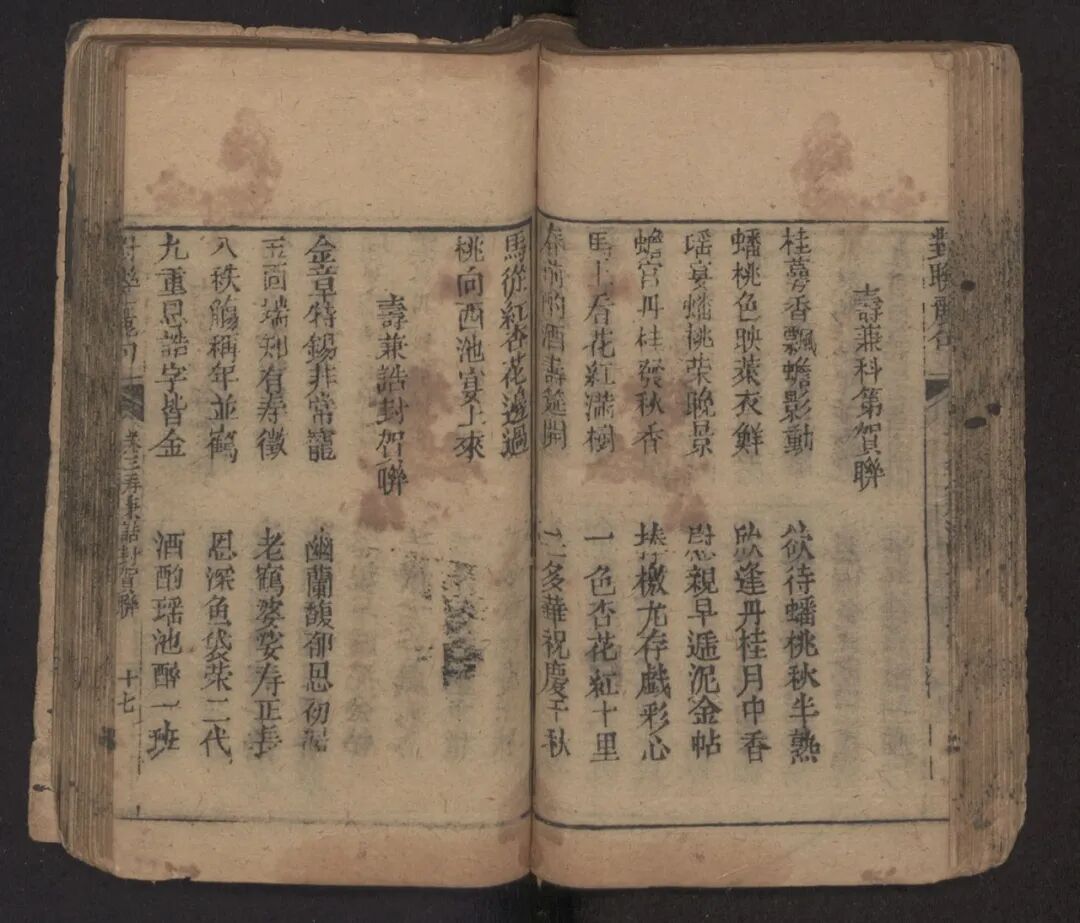 對聯
壽兼科第賀聯
桂蕚香飄蟾影動 欲待蟠桃秋半熟
蟠桃色映萊衣鮮 欣逢丹桂月中香
瑶宴蟠桃荣晚景 慰親早遞泥金帖
蟾宮丹桂發秋香 捧檄尤存戯彩心
馬上看花紅滿樹 一色杏花紅十里
春前酌酒壽筵開 三多華祝慶千秋
馬從紅杏花邊過
桃向西池宴上來
壽兼誥封賀聯
金章特錫非常寵 幽蘭馥郁恩初渥
端知有寿徵 老鶴婆娑寿正長
八秩觴稱年並鶴 恩深魚袋荣二代
九重恩誥字皆金 酒酌瑶池醉一班
卷三寿兼誥封賀聯 十七